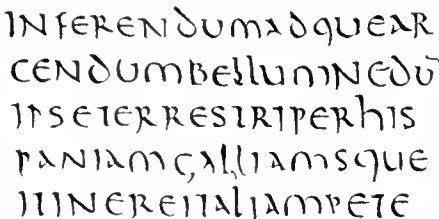 INFERENDUMADQUEAR
CENDUMBELLUMINEDŪ
IPSETERRESTRIPERHIS
PANIAMGALLIAMSQUE
ITINEREITALIAMPETE